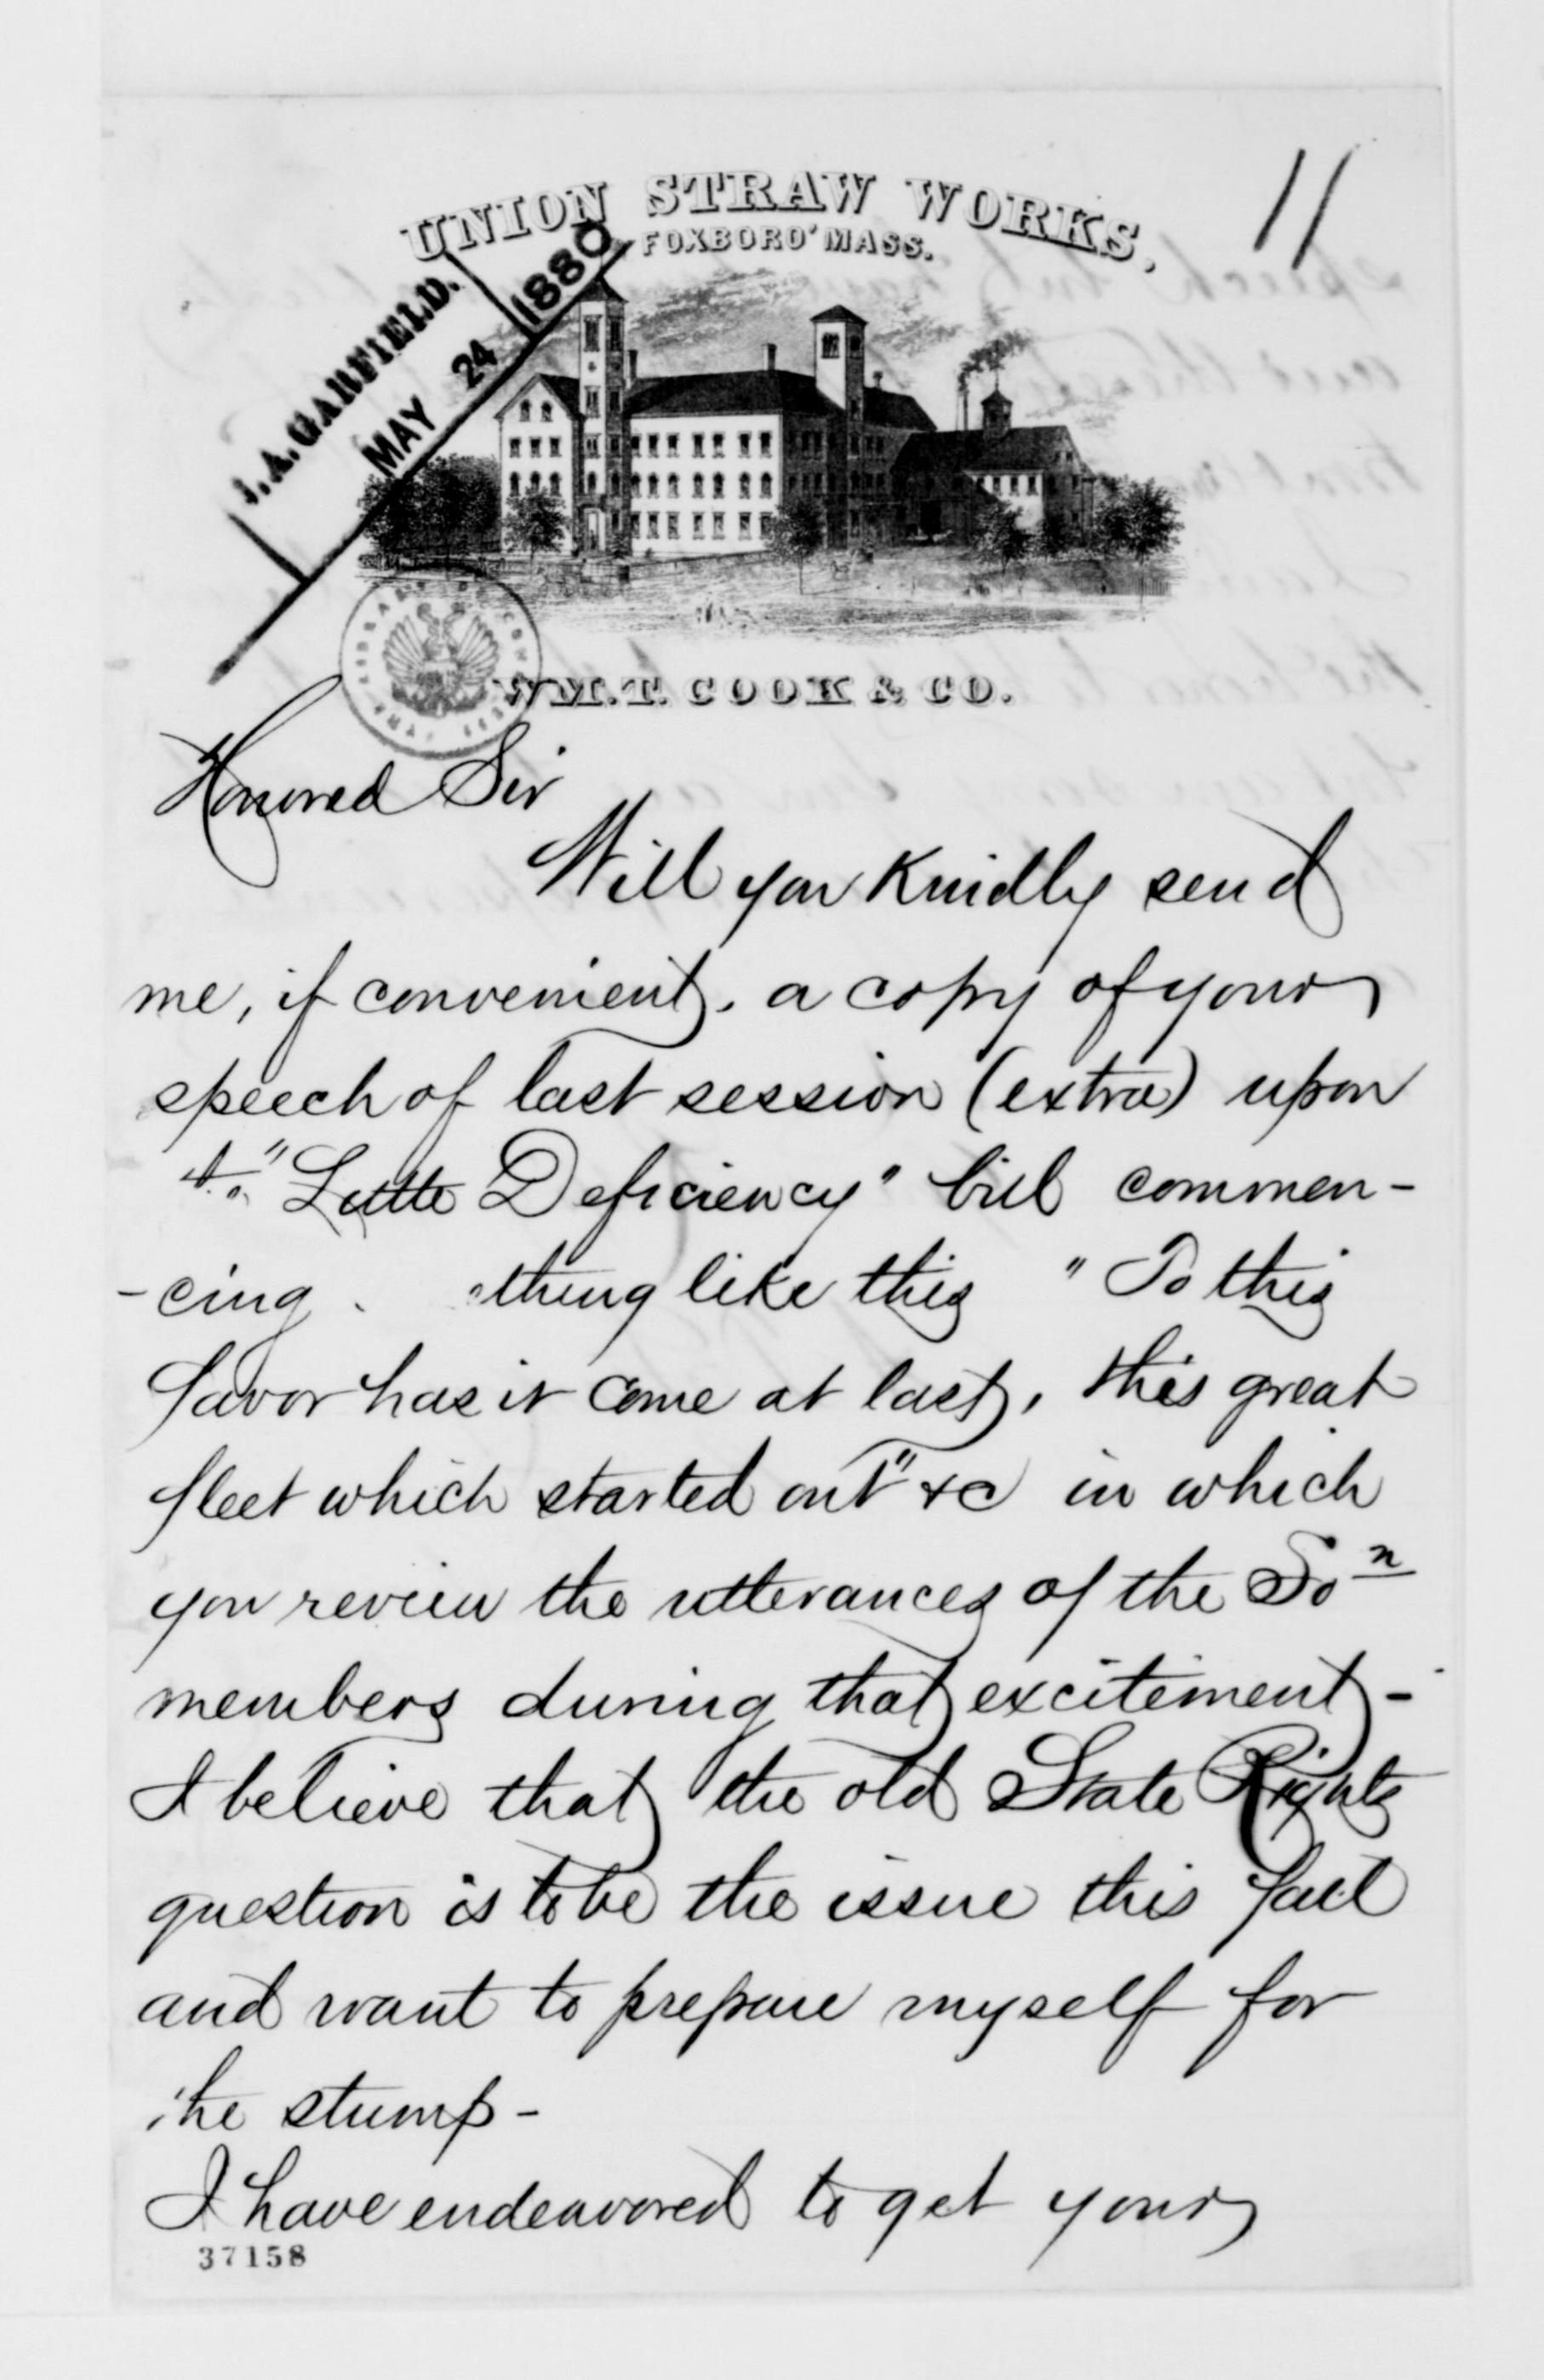 11
UNION STRAW WORKS,
FOXBORO' MASS.
J. A. GARFIELD.
MAY 24 1880
WM. T. COOK & CO.
Honored Sir
Will you Kindly send
me, if convenient, a copy of your
speech of last session (extra) upon
"Little Deficiency" bill commen-
-cing thing like this "To this
favor has it come at last, this great
fleet which started out" &c in which
you review the utterances of the Son
members during that excitement -
I believe that the old State Rights
question is to be the issue this fall
and want to prepare myself for
the stump -
I have endeavored to get your
37158